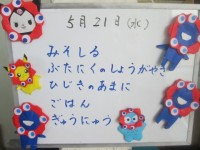 5月21日(水)
みそしる
ぶたにくのしょうがやき
ひじきのあまに
ごはん
ぎゅうにゅう